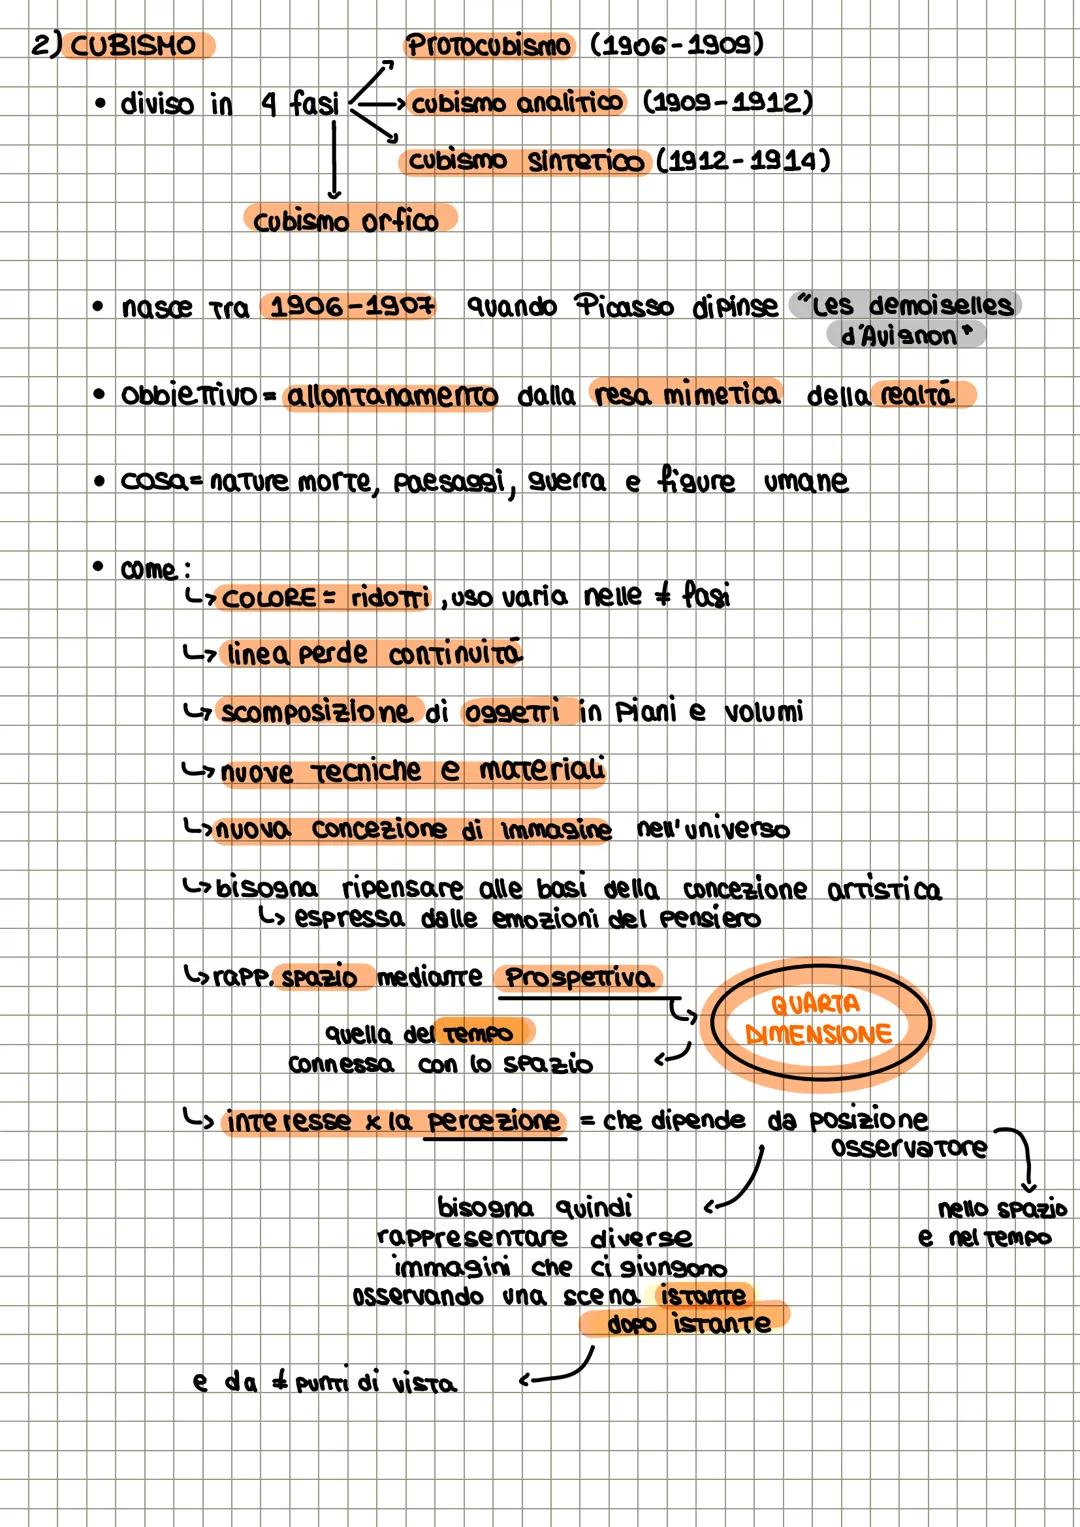 2) CUBISMO
Protocubismo (1906-1909)
• diviso in 4 fasi
cubismo analitico (1909-1912)
cubismo sintetico (1912-1914)
cubismo orfico
• nasce tra 1906-1907 quando Picasso dipinse "Les demoiselles
d'Avignon"
• obbiettivo = allontanamento dalla resa mimetica della realtà
• cosa = nature morte, paesaggi, guerra e figure umane
• come:
↳ COLORE = ridotti, uso varia nelle ≠ fasi
↳ linea perde continuità
↳ scomposizione di oggetti in piani e volumi
↳ nuove tecniche e materiali
↳ nuova concezione di immagine nell'universo
↳ bisogna ripensare alle basi della concezione artistica
↳ espressa dalle emozioni del pensiero
↳ rapp. spazio mediante Prospettiva
QUARTA
DIMENSIONE
quella del tempo
connessa con lo spazio
↳ interesse x la percezione = che dipende da posizione
osservatore
nello spazio
e nel tempo
bisogna quindi
rappresentare diverse
immagini che ci giungono
osservando una scena istante
dopo istante
e da ≠ punti di vista